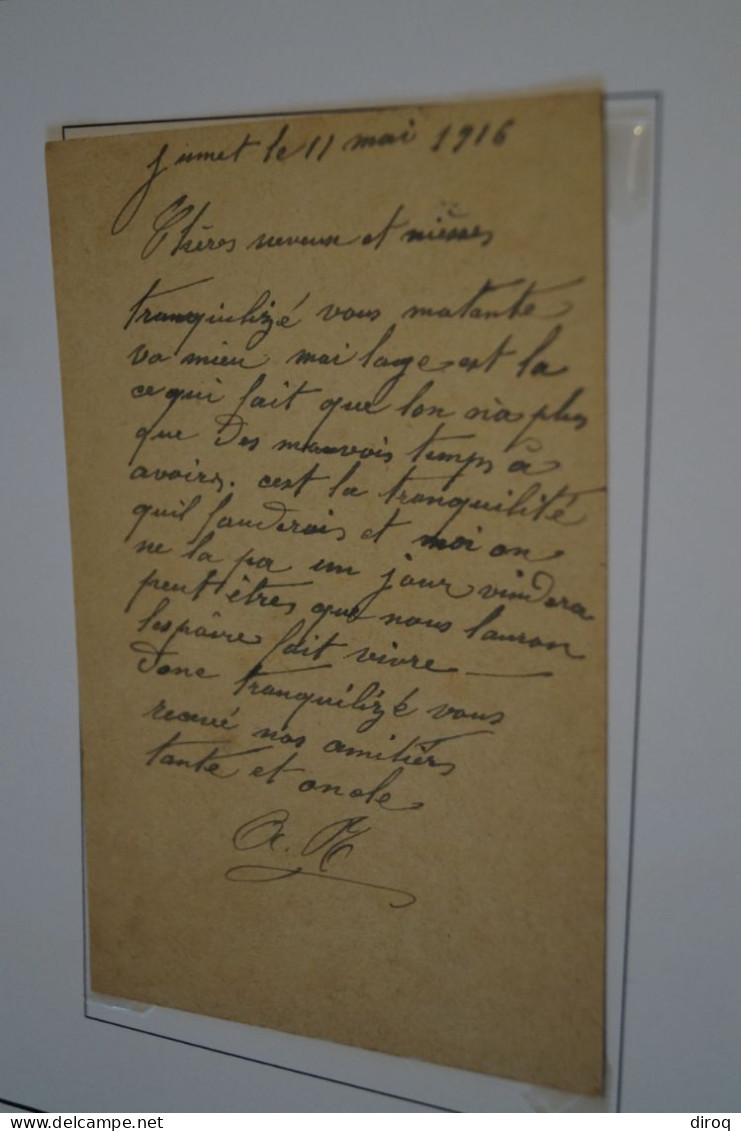 Jumet le 11 mai 1916
Chères neveux et nièsses
tranquilizé vous matante
va mieu mai lage est la
ce qui fait que lon na plus
que des mauvois temps à
avoirs. cest la tranquilité
quil fauderais et moi on
ne la pa un jour vindera
peut êtres que nous lauron
lespoire fait vivre
Donc tranquilizé vous
recevé nos amitiérs
tante et oncle
delcampe.net
diroq